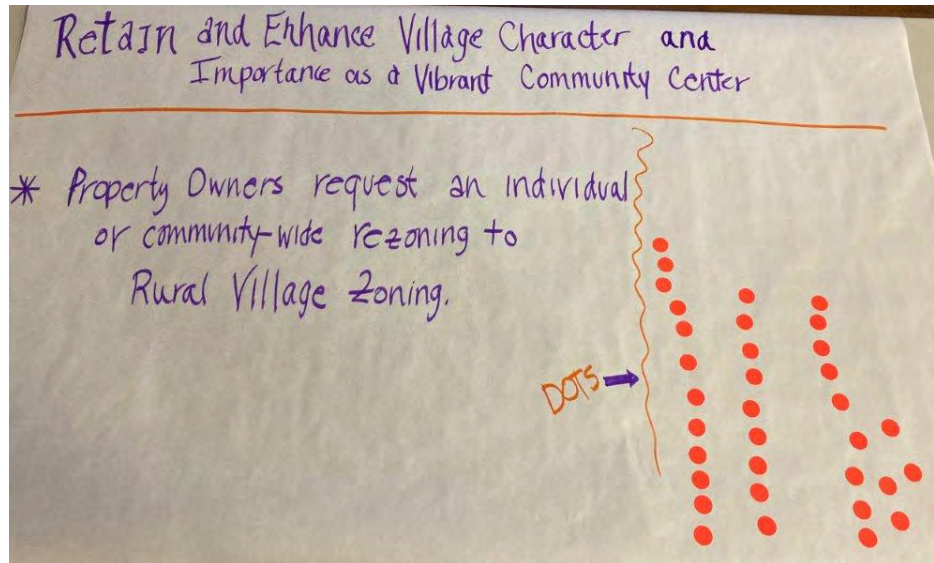 Retain and Enhance Village Character and
Importance as a Vibrant Community Center
* Property Owners request an individual
or community-wide rezoning to
Rural Village Zoning.
DOTS →